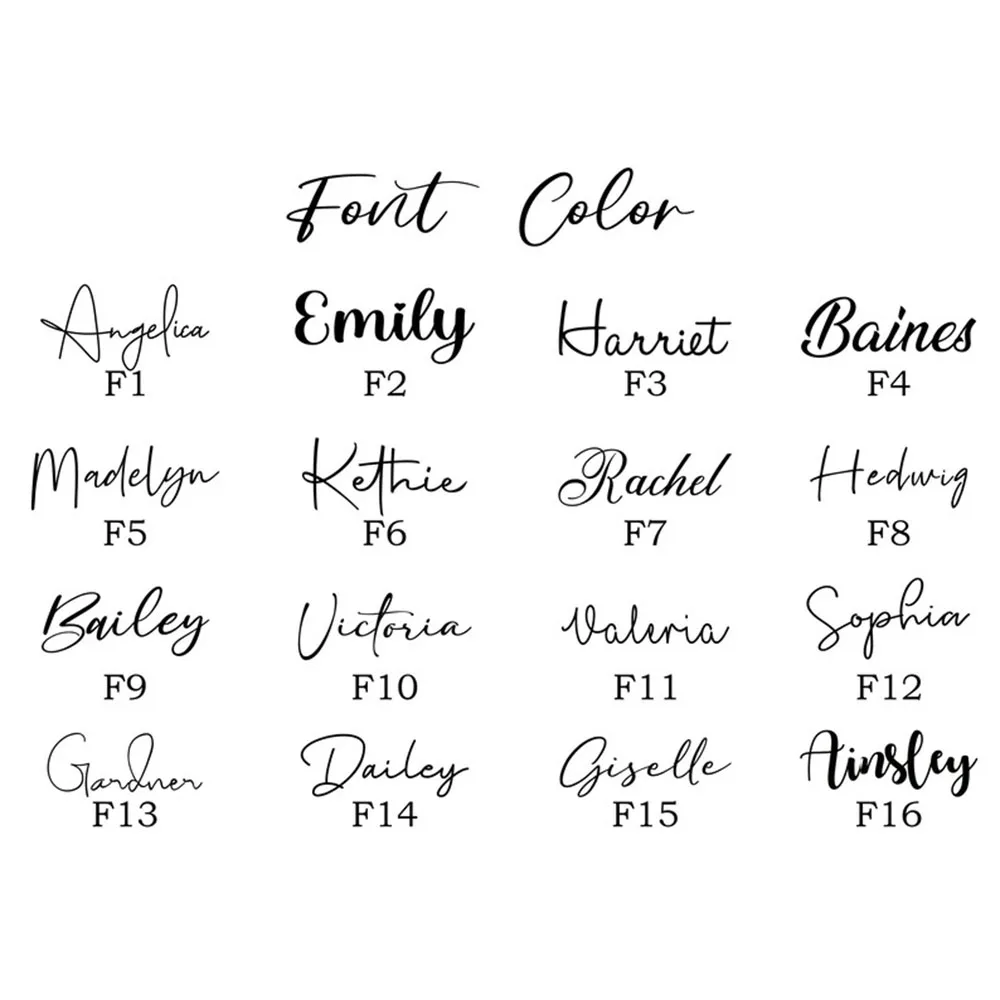 Font Color
Angelica Emily Harriet Baines
F1 F2 F3 F4
Madelyn Kethie Rachel Hedwig
F5 F6 F7 F8
Bailey Victoria Valeria Sophia
F9 F10 F11 F12
Gardner Dailey Giselle Ainsley
F13 F14 F15 F16